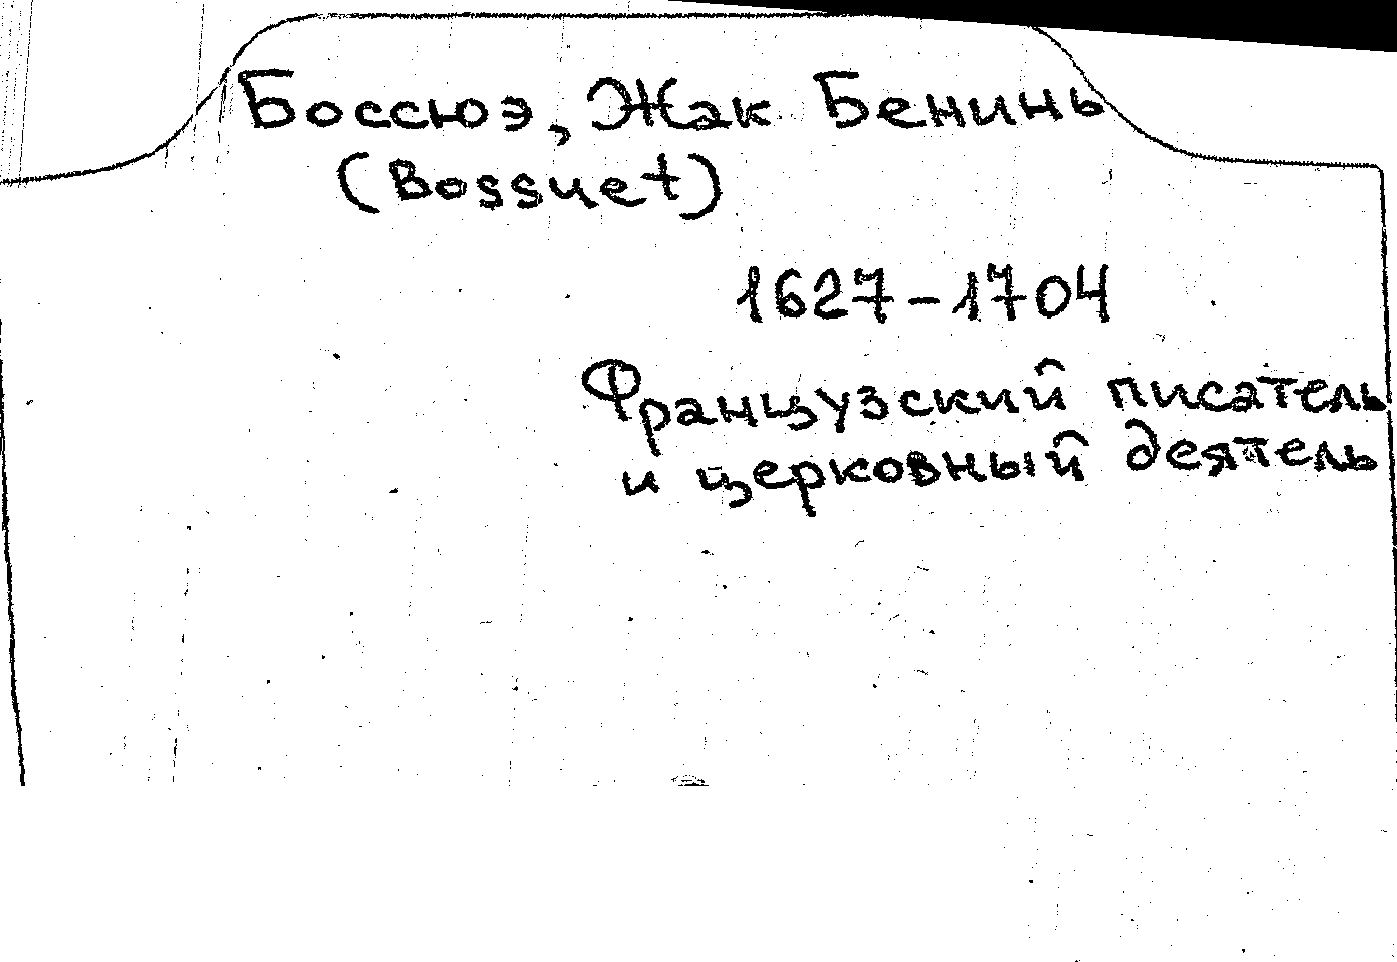 Боссюэ, Жак Бенинь
(Bossuet)
1627-1704
Французский писатель
и церковный деятель